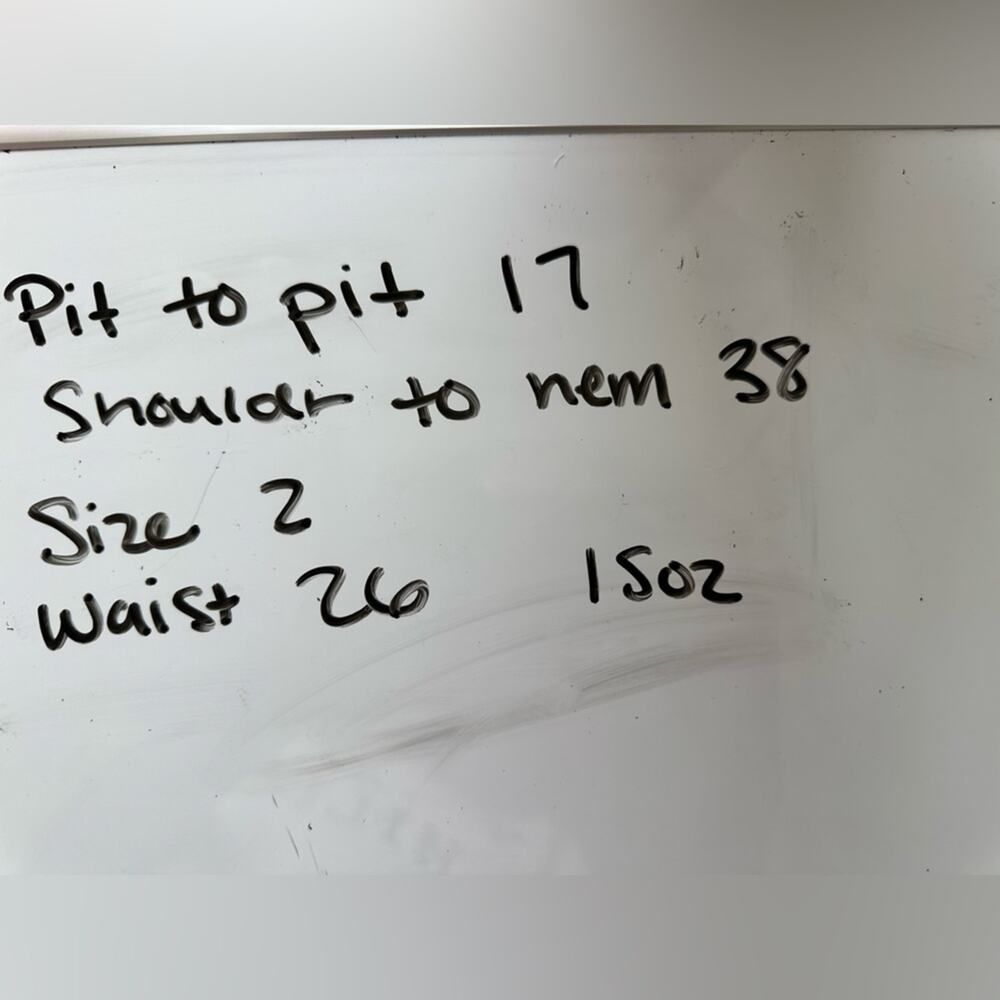 Pit to pit 17
Shoulder to hem 38
Size 2
Waist 26 15oz